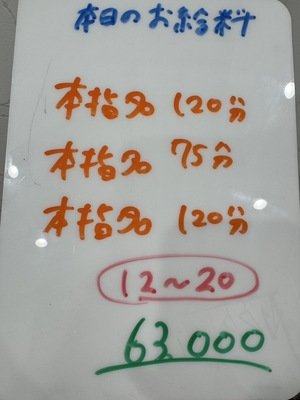 本日のお給料
本指名 120分
本指名 75分
本指名 120分
12~20
63.000